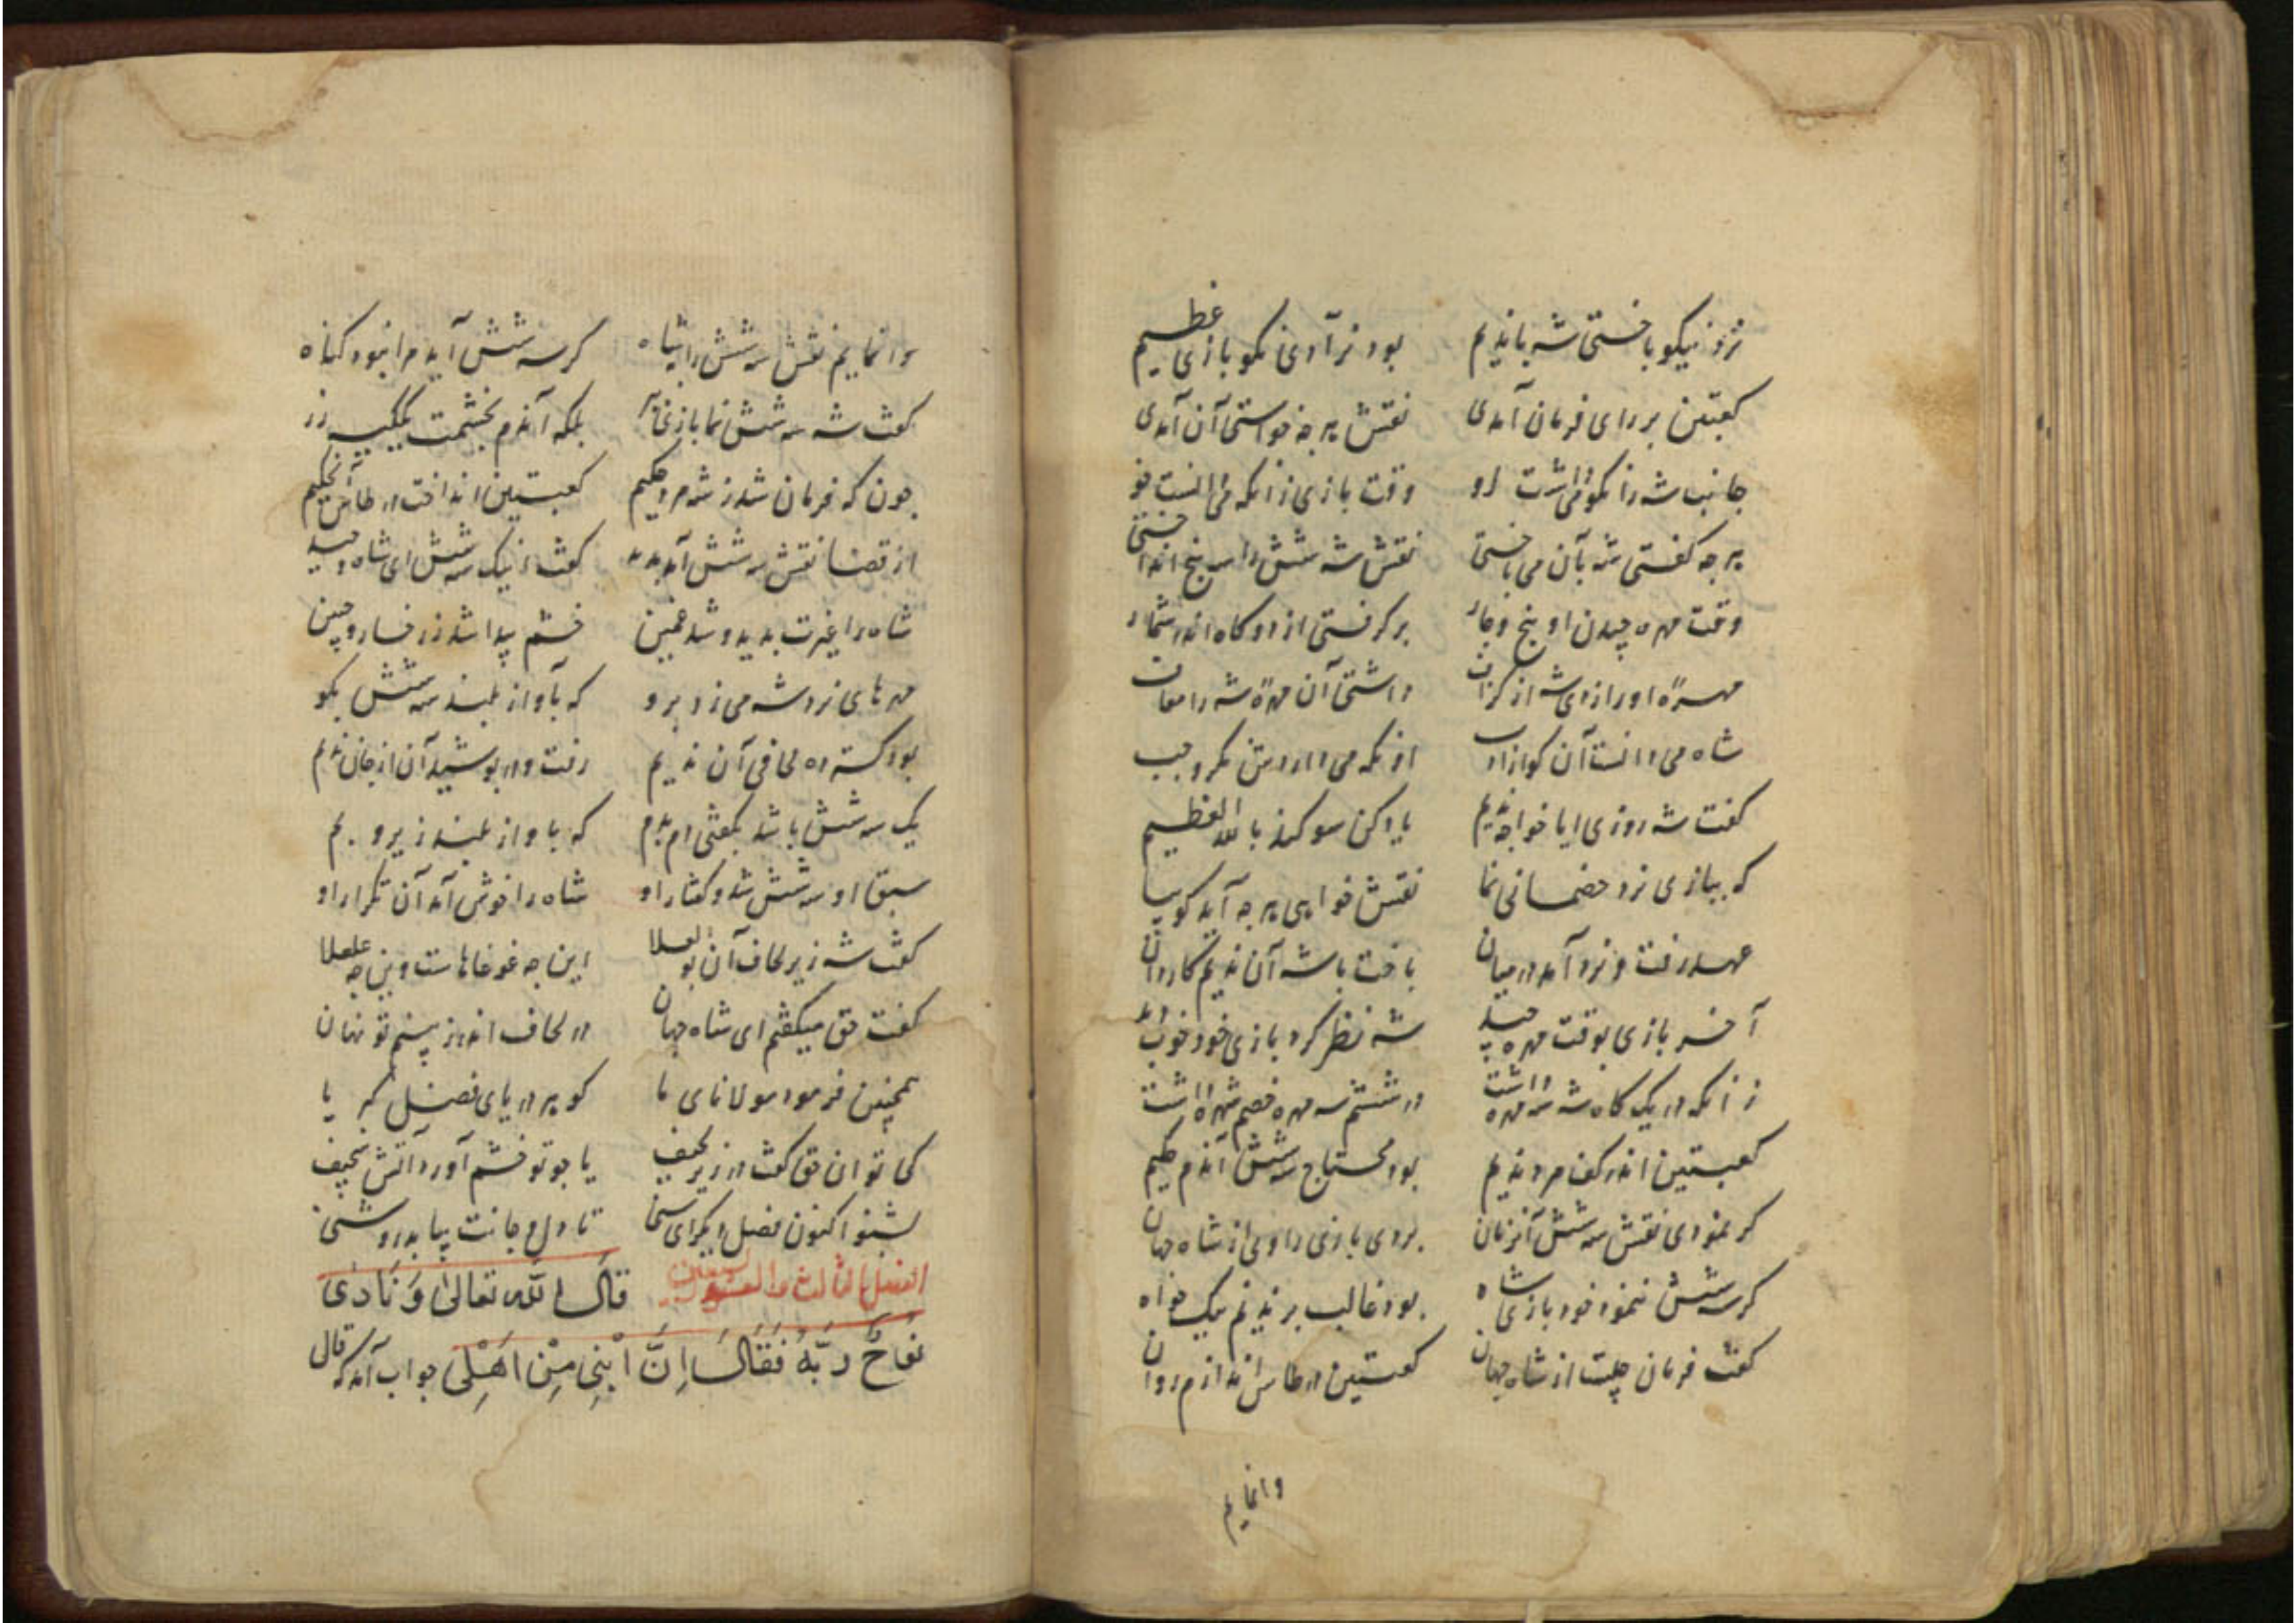 نرد نیکو باختی شه با ندیم بود نرآدی نکو بازی عظیم
کعبتین بر رای فرمان آمدی نقش هرچه خواستی آن آمدی
جانب شه را نکو می‌داشت او وقت بازی زانکه می‌دانست خو
هرچه گفتی شه بآن می باختی نقش شه شش را سه پنج انداختی
وقت مهره چیدن او پنج و چار برگرفتی از دو گاه اندر شمار
مهرهٔ او را زدی شه از گزاف داشتی آن مهرهٔ شه را معاف
شاه می دانست آن کو از ادب او نگه می دارد
گفت شه روزی ایا خواجه ندیم یاد کن سوکند بالله العظیم
که ببازی نرد خصمانی نما نقش خواهی هرچه آید کو بیا
عهد رفت و نرد آمد در میان باخت با شه آن ندیم کاردان
آخر بازی بوقت مهره چید شه نظر کرد بازی خود خوب دید
زانکه در یک گاه شه سه مهره داشت در ششم سه مهره خصم شهره داشت
کعبتین اندر کف مرد ندیم بود محتاج سه شش آندم حکیم
گر نمودی نقش سه شش آنزمان بردی بازی را ولی از شاه جهان
گر سه شش ننمود خود بازی شاه بود غالب بر ندیم نیک خواه
گفت فرمان چیست از شاه جهان کعبتین در طاس اندازم روان
وانمایم
وانمایم نقش سه شش را بشاه گر سه شش آید مرا نبود کناه
گفت شه سه شش نما بازی بلکه آندم بخشمت زر
چون که فرمان شد ز شه مرد حکیم کعبتین انداخت در طاس آن حکیم
از قضا نقش سه شش آمد پدید گفت نیک سه شش ای شاه وحید
شاه را غیرت بدید و شد غمین خشم پیدا شد ز رخسار و جبین
مهرهای نرد شه می زد برو که بآواز بلند سه شش بگو
بود کسترده لحافی آن ندیم رفت و در پوشید آن از
یک سه شش باشد بگفتی دم بدم که بآواز بلند زیر و بم
سبق او سه شش شد و گفتار او شاه را خوش آمد آن تکرار او
گفت شه زیر لحاف آن بو العلا این چه غوغاهاست وین چه علعلا
گفت حق میگفتم ای شاه جهان در لحاف اندر ز بیم تو نهان
همچنین فرمود مولانای ما کو بر دریای فضل کبریا
کی توان حق گفت در زیر لحیف با چو تو خشم آور آتش سجیف
بشنو اکنون فصل دیگر ای سخی تا دل و جانت بیابد روشنی
الفصل الثالث و السبعین قال الله تعالی وَنَادٰی
نُوحٌ رَبَّهُ فَقَالَ اِنَّ ابْنِی مِنْ اَهْلِی جواب آمد که قال